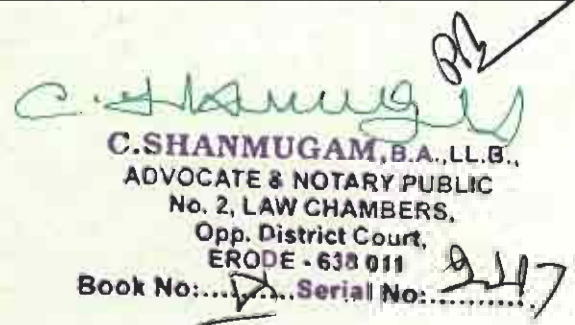 C. Shanmugam
C.SHANMUGAM,B.A.,LL.B.,
ADVOCATE & NOTARY PUBLIC
No. 2, LAW CHAMBERS,
Opp. District Court,
ERODE - 638 011
Book No:............Serial No:............